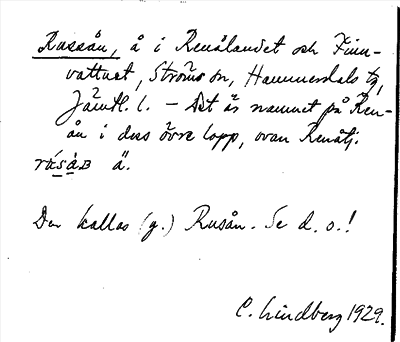 Russån, å i Renålandet och Finn-
vattnet, Ströms sn, Hammerdals tg,
Jämtl. l. – Det är namnet på Ren-
ån i dess övre lopp, ovan Renåtj.
rúsàʙ ä.
Den kallas (g.) Rusån. Se d. o.!
C. Lindberg 1929.